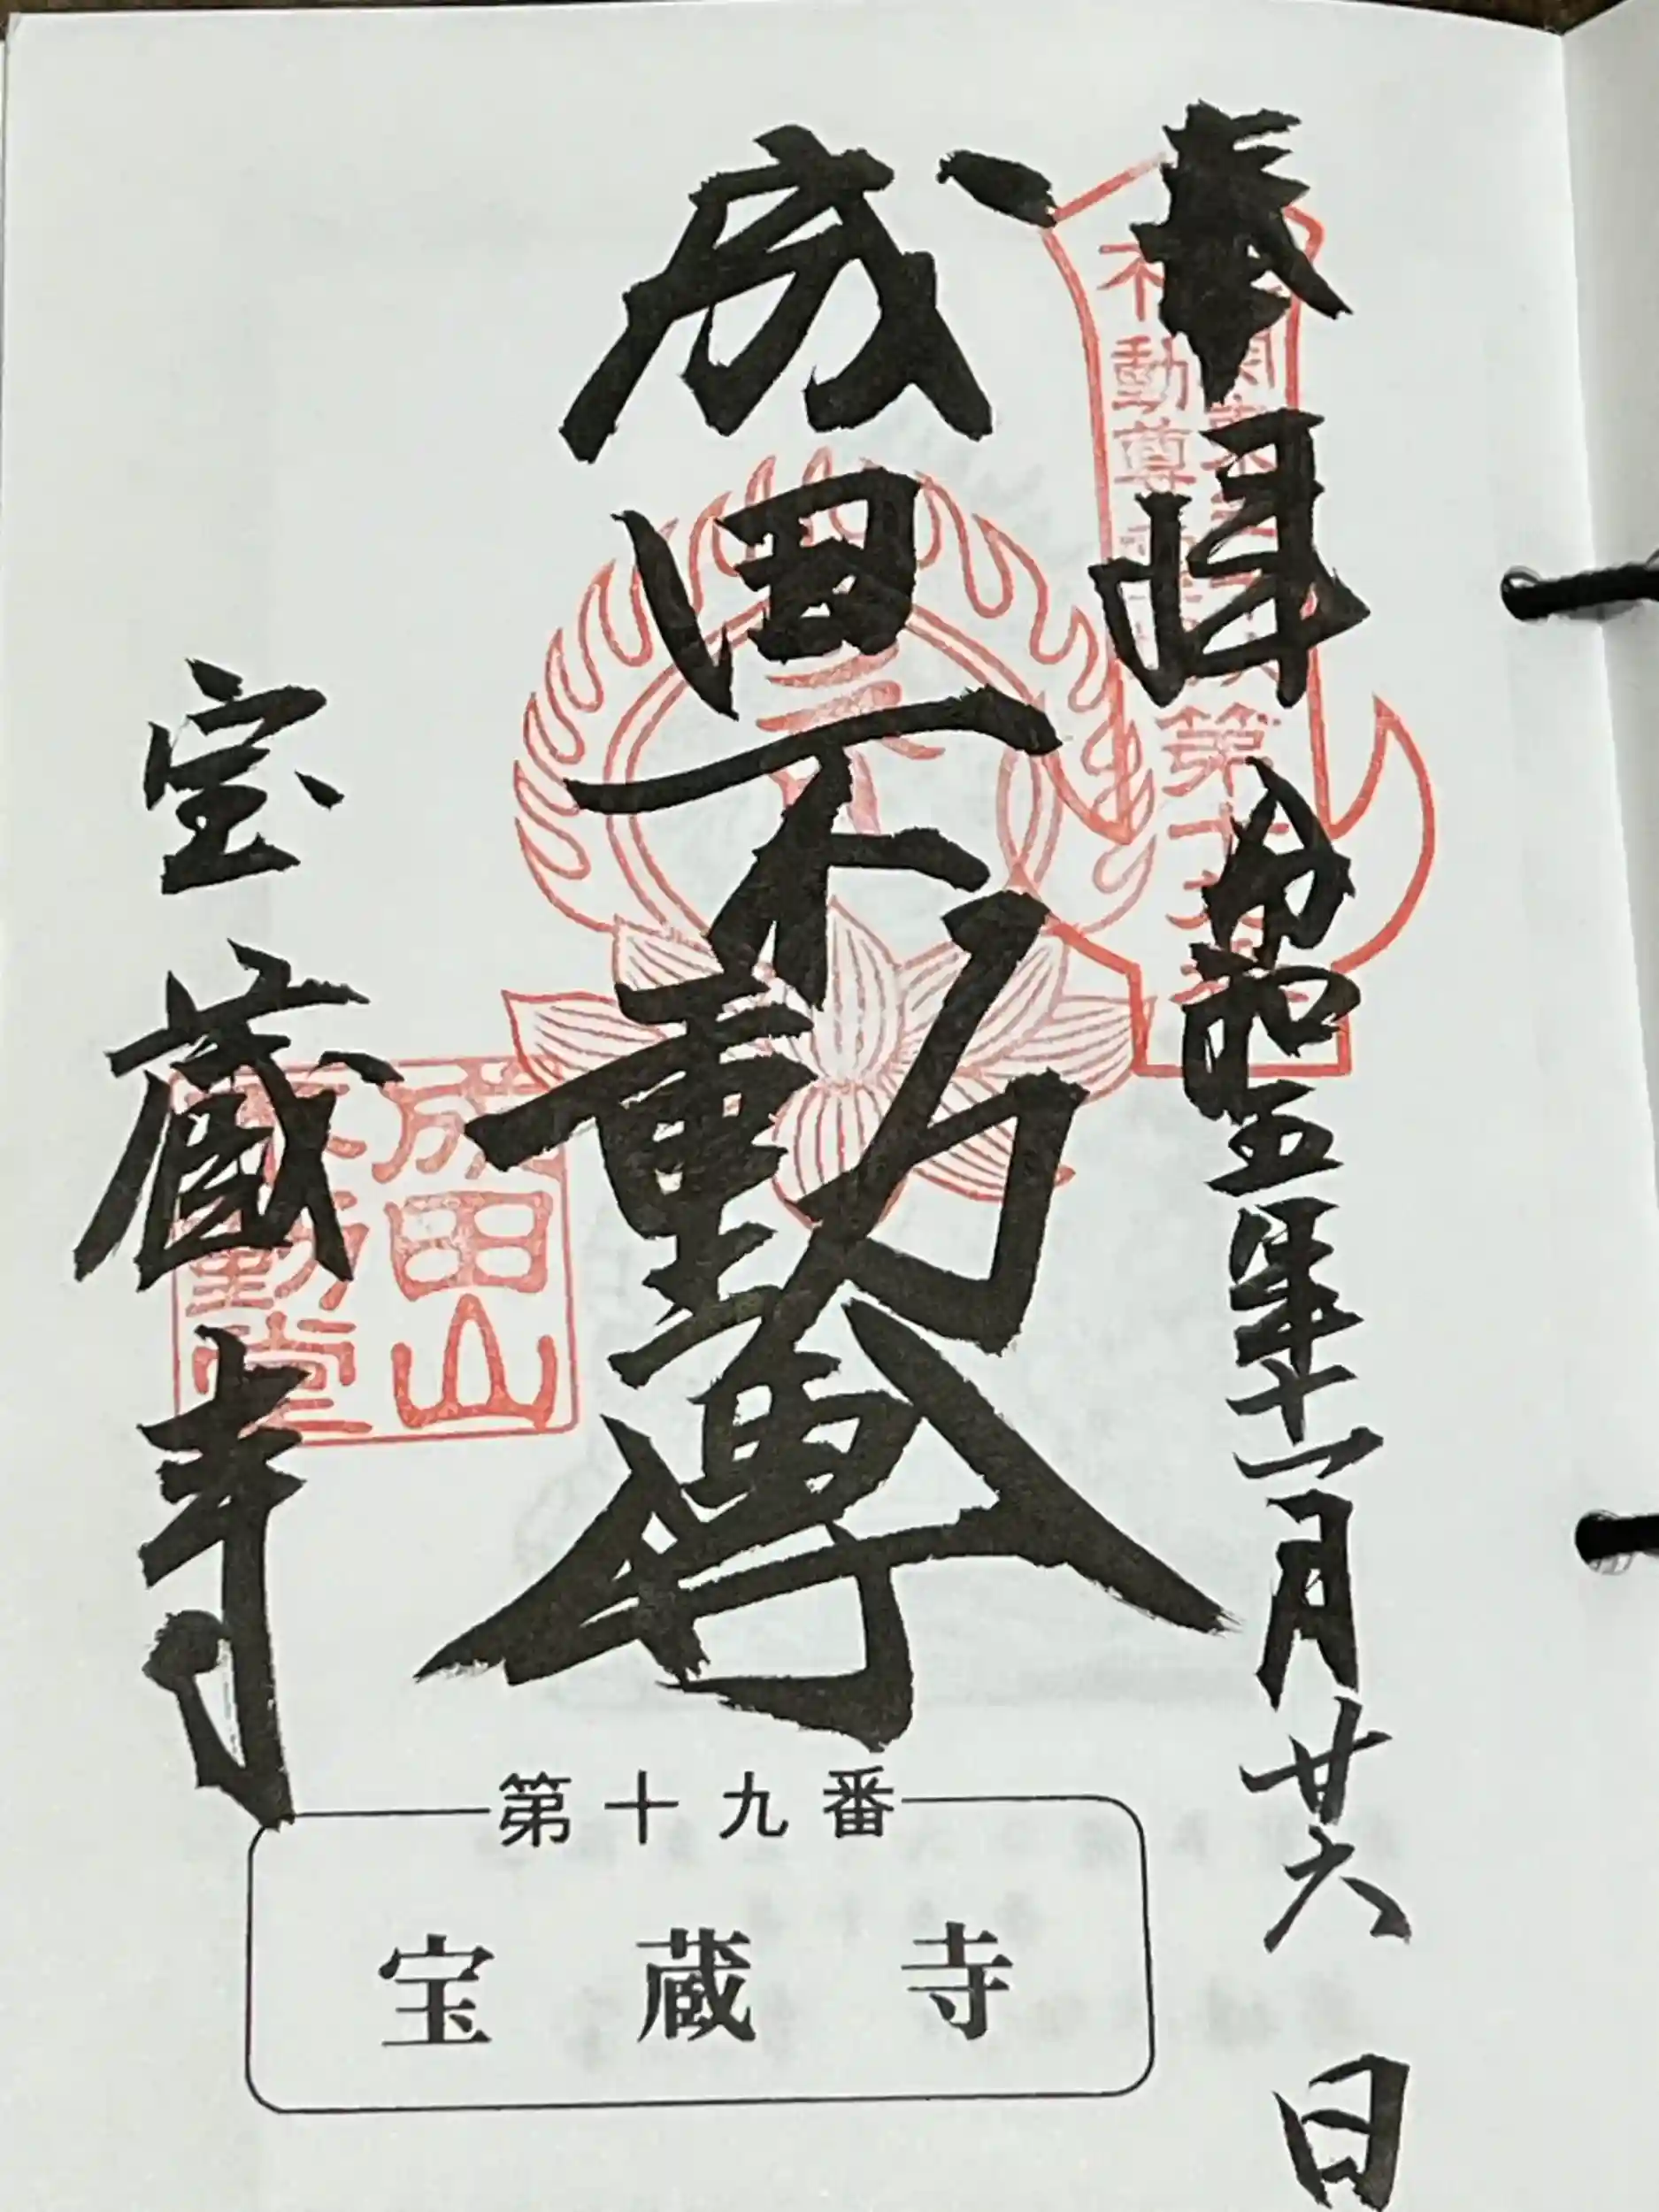 奉拝
令和五年十一月廿六日
成田不動尊
宝蔵寺
不動尊
第十九番
成田山
不動堂
第十九番
宝蔵寺